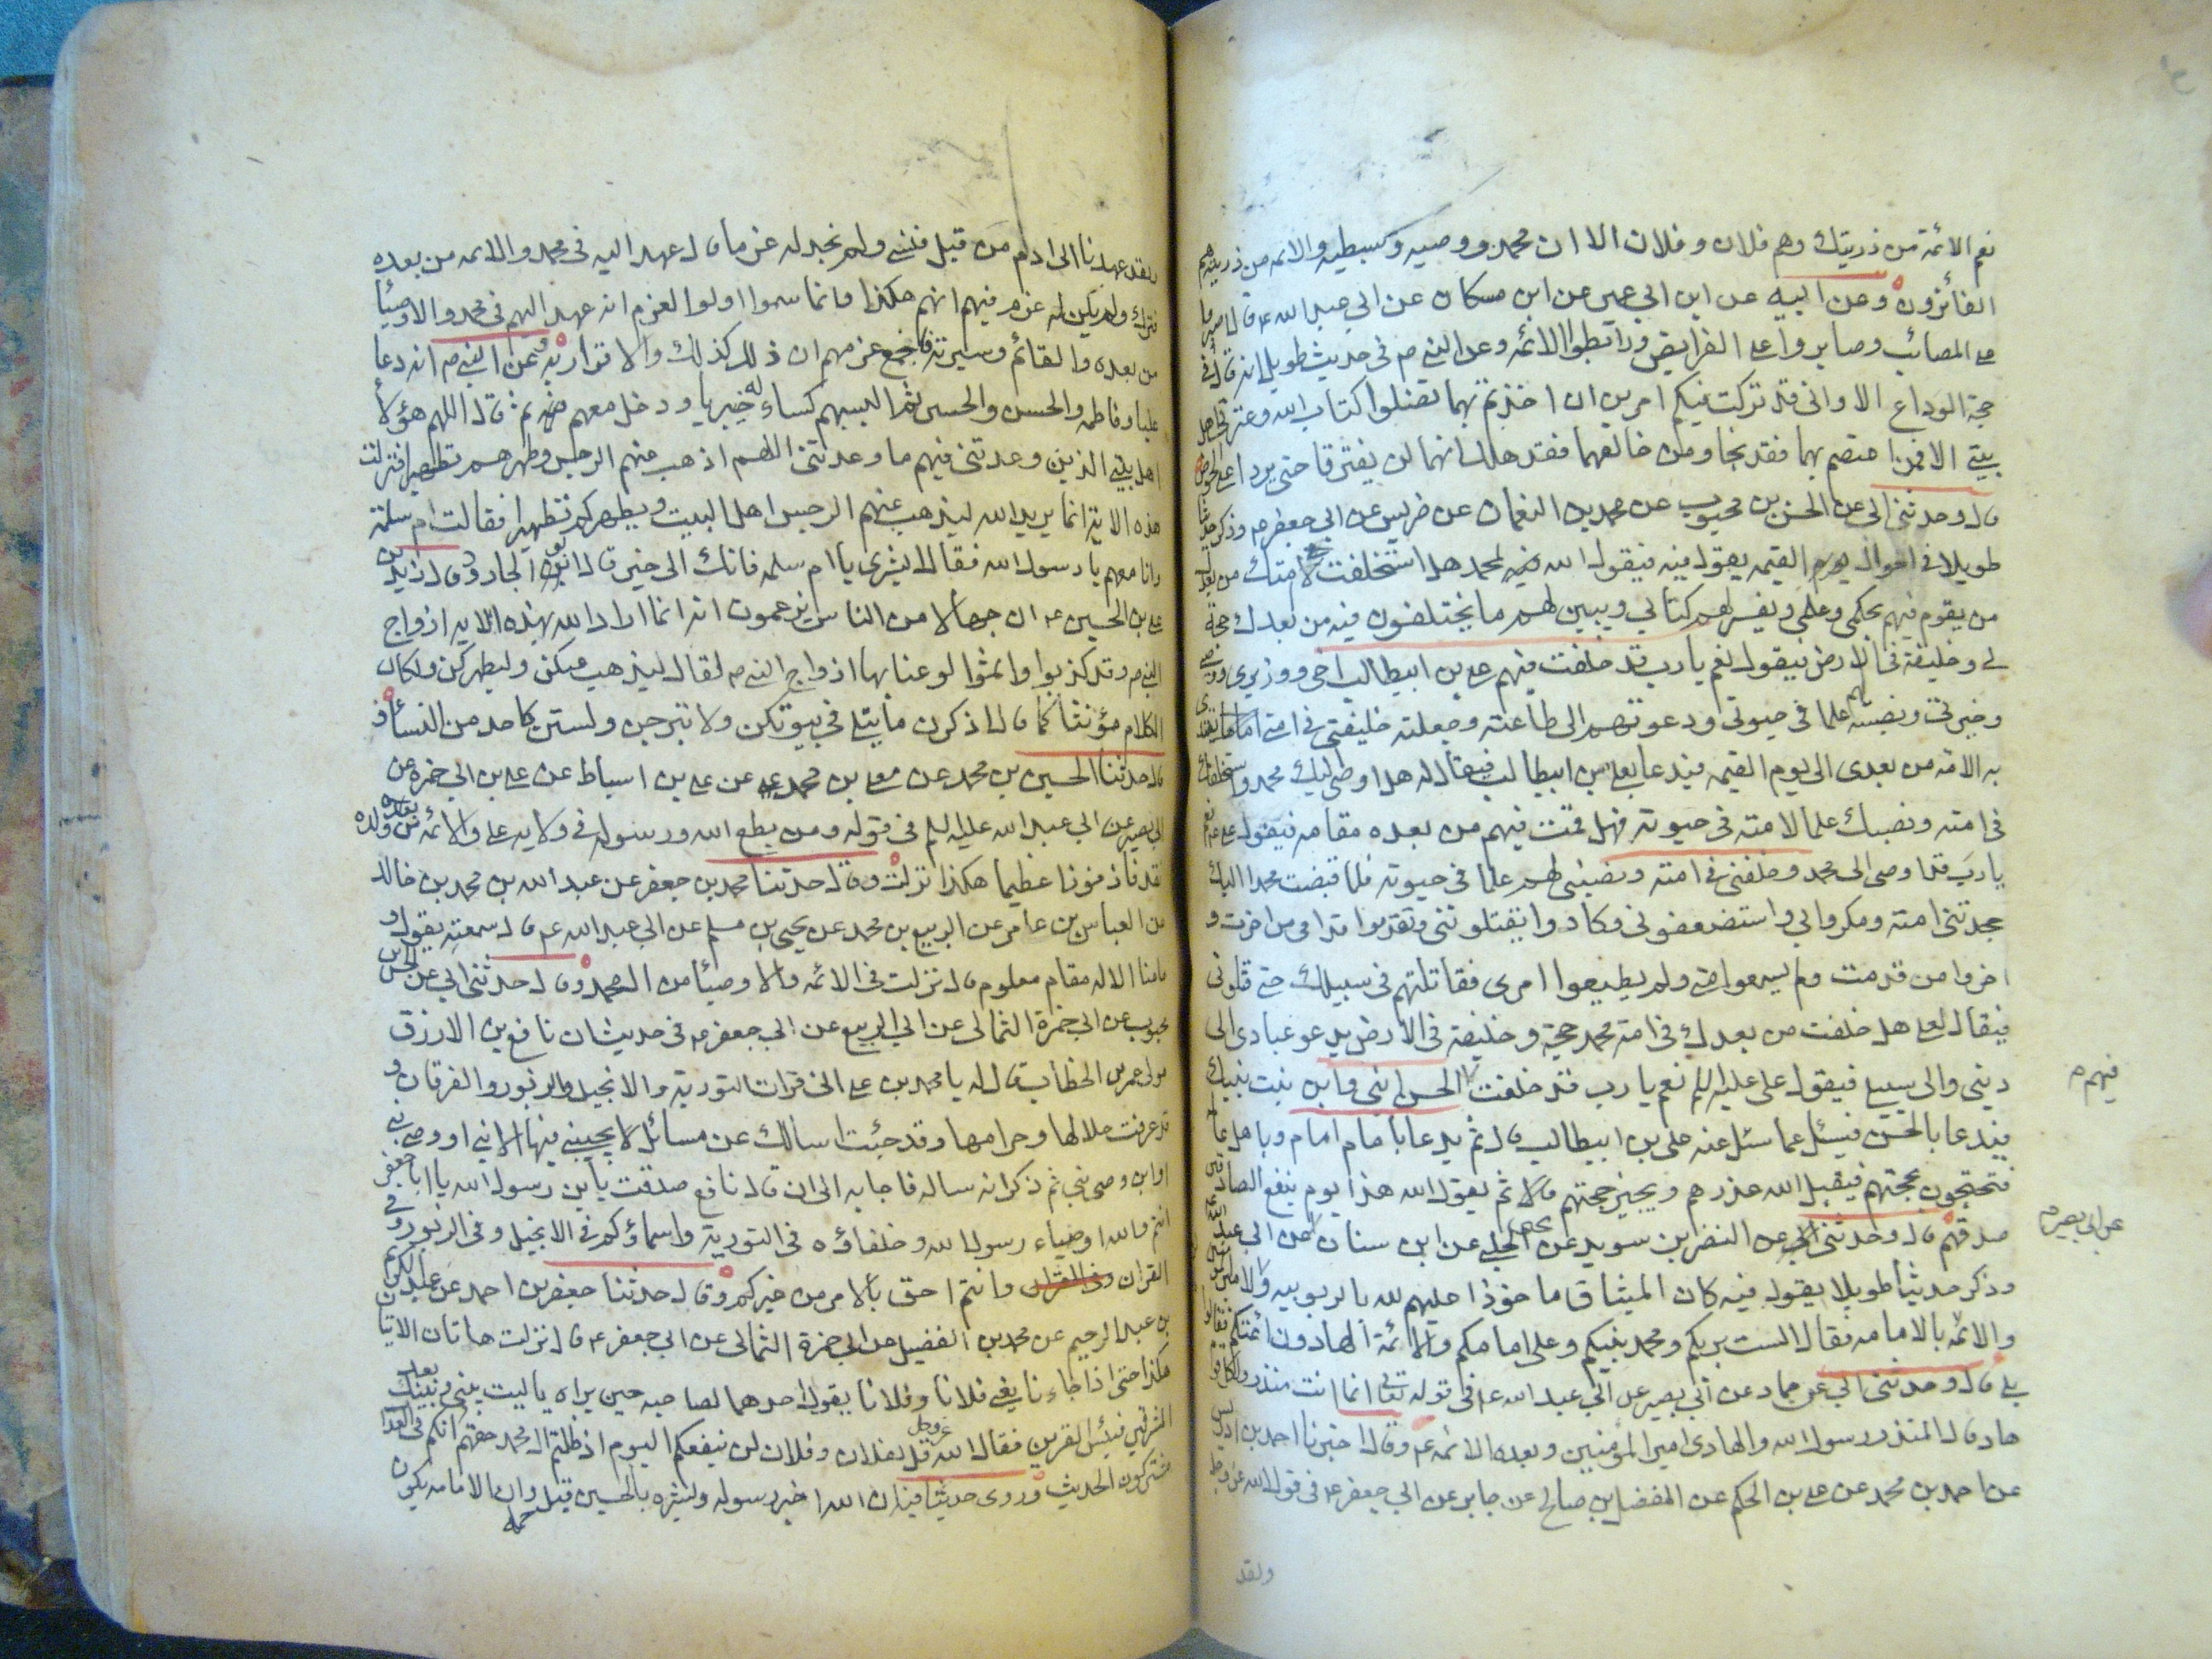 نعم الائمة من ذريتك وهم فلان وفلان الا ان محمد ووصيه وسبطيه والائمه من ذريته هم
الفائزون وعن ابيه عن ابن ابي عمير عن ابن مسكان عن ابي عبد الله ع قال اصبروا
على المصائب وصابروا على الفرايض ورابطوا الائمه وعن النبي ص في حديث طويل انه قال في
حجة الوداع الا واني قد تركت فيكم امرين ان اخذتم بهما لن تضلوا كتاب الله وعترتي اهل
بيتي الا فمن اعتصم بهما فقد نجا ومن خالفهما فقد هلك انهما لن يفترقا حتى يردا على الحوض
قال وحدثني ابي عن الحسن بن محبوب عن محمد بن النعمان عن ضريس عن ابي جعفر ع وذكر حديثا
طويلا في احوال يوم القيمه يقول فيه فيقول الله فيه لمحمد هل استخلفت في امتك من بعدك
من يقوم فيهم بحكمي وعلمي ويفسر لهم كتابي ويبين لهم ما يختلفون فيه من بعدك حجة
لي وخليفة في الارض فيقول نعم يا رب قد خلفت فيهم علي بن ابيطالب اخي ووزيري ووصيي
وخيرتي ونصبته لهم علما في حيوتي ودعوتهم الى طاعته وجعلته خليفتي في امتي اماما يقتدى
به الائمه من بعدي الى يوم القيمه فيدعا بعلي بن ابيطالب فيقال له هل اوصى اليك محمد واستخلفك
في امته ونصبك علما لامته في حيوته فهل قمت فيهم من بعده مقامه فيقول علي ع نعم
يا رب قد اوصى الي محمد وخلفني في امته ونصبني لهم علما في حيوته فلما قبضت محمدا اليك
جحدتني امته ومكروا بي واستضعفوني وكادوا يقتلونني وقدموا قدامي من اخرت و
اخروا من قدمت ولم يسمعوا مني ولم يطيعوا امري فقاتلتهم في سبيلك حتى قتلوني
فيقال لعلي هل خلفت من بعدك في امة محمد حجة وخليفة في الارض يدعو عبادي الى
ديني والى سبيلي فيقول علي عليه السلم نعم يا رب قد خلفت فيهم الحسن ابني وابن بنت نبيك
فيدعا بالحسن فيسئل عما سئل عنه علي بن ابيطالب قال ثم يدعا بامام امام وباهل عالمه
فتحتجون بحجتهم فيقبل الله عذرهم ويجيز حجتهم قال ثم يقول الله هذا يوم ينفع الصادقين
صدقهم قال وحدثني ابي عن النضر ابن سويد عن يحيى الحلبي عن ابن سنان عن ابي عبد الله ع
وذكر حديثا طويلا يقول فيه كان الميثاق ماخوذا عليهم لله بالربوبيه ولامير المؤمنين
والائمه بالامامه فقال الست بربكم ومحمد نبيكم وعلي امامكم والائمة الهادون ائمتكم فقالوا
بلى قال وحدثني ابي عن حماد عن ابي بصير عن ابي عبد الله ع في قوله تعالى انما انت منذر ولكل قوم
هاد قال المنذر رسول الله والهادي امير المؤمنين وبعده الائمه ع وقال اخبرنا احمد بن ادريس
عن احمد بن محمد عن علي بن الحكم عن المفضل بن صالح عن جابر عن ابي جعفر ع في قول الله عز وجل
فيهم م
عن ابي بصير م
ولقد
ولقد عهدنا الى ادم من قبل فنسي ولم نجد له عزما قال عهد اليه في محمد والائمه من بعده
فترك ولم يكن له عزم فيهم انهم هكذا وانما سموا اولوا العزم انه عهد اليهم في محمد والاوصياء
من بعده والقائم وسيرته فاجمع عزمهم ان ذلك كذلك والاقرار به وعن النبي ص انه دعا
عليا وفاطمه والحسن والحسين ثم البسهم كساء له خيبريا ودخل معهم فيه ثم قال اللهم هؤلاء
اهل بيتي الذين وعدتني فيهم ما وعدتني اللهم اذهب عنهم الرجس وطهرهم تطهيرا فنزلت
هذه الاية انما يريد الله ليذهب عنهم الرجس اهل البيت ويطهركم تطهيرا فقالت ام سلمة
وانا معهم يا رسول الله فقال ابشري يا ام سلمه فانك الى خير قال ابو الجارود قال زيد بن
علي بن الحسين ع ان جهالا من الناس يزعمون انه انما اراد الله بهذه الايه ازواج
النبي ص وقد كذبوا واثموا لو عنا بها ازواج النبي ص لقال ليذهب عنكن وليطهركن ولكان
الكلام مؤنثا كما قال اذكرن ما يتلى في بيوتكن ولا تبرجن ولستن كاحد من النساء
قال حدثنا الحسين بن محمد عن معلى بن محمد عن علي بن اسباط عن علي بن ابي حمزه عن
ابي بصير عن ابي عبد الله عليه السلم في قوله ومن يطع الله ورسوله في ولايه علي والائمه من بعده ولده
فقد فاز فوزا عظيما هكذا نزلت وقال حدثنا محمد بن جعفر عن عبد الله بن محمد بن خالد
عن العباس بن عامر عن الربيع بن محمد عن يحيى بن مسلم عن ابي عبد الله ع قال سمعته يقول و
ما منا الا له مقام معلوم قال نزلت في الائمه والاوصياء من ال محمد وقال حدثني ابي عن الحسن بن
محبوب عن ابي حمزة الثمالي عن ابي الربيع عن ابي جعفر ع في حديث ان نافع بن الازرق
مولى عمر بن الخطاب قال له يا محمد بن علي اني قرات التورية والانجيل والزبور والفرقان و
قد عرفت حلالها وحرامها وقد جئت اسالك عن مسائل لا يجيبني فيها الا نبي او وصي نبي
او ابن وصي نبي ثم ذكر انه ساله فاجابه الى ان قال نافع صدقت يا بن رسول الله يا ابا جعفر
انتم والله اوصياء رسول الله وخلفاؤه في التورية واسماؤكم في الانجيل وفي الزبور وفي
القران وانتم احق بالامر من غيركم وقال حدثنا جعفر بن احمد عن عبد الكريم
بن عبد الرحيم عن محمد بن الفضيل عن ابي حمزة الثمالي عن ابي جعفر ع قال نزلت هاتان الايتان
هكذا حتى اذا جاءانا يعني فلانا وفلانا يقول احدهما لصاحبه حين يراه يا ليت بيني وبينك بعد
المشرقين فبئس القرين فقال الله عز وجل قل لفلان وفلان لن ينفعكم اليوم اذ ظلمتم ال محمد حقهم انكم في العذاب
مشتركون الحديث وروى حديثا فيه ان الله اخبر رسوله وبشره بالحسين قبل حمله وان الامامه يكون